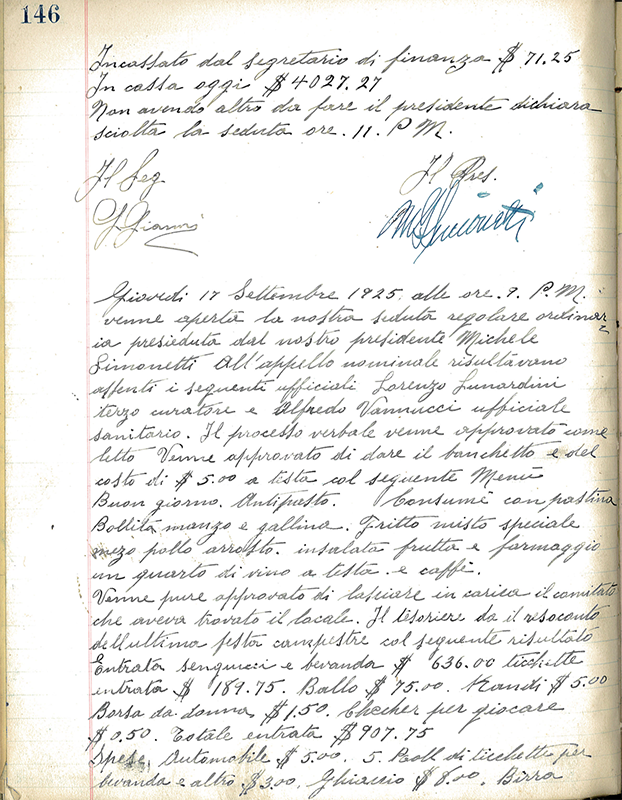 146
Incassato dal segretario di finanza $ 71.25
In cassa oggi $ 4027.27
Non avendo altro da fare il presidente dichiara
sciolta la seduta ore. 11. P.M.
Il Seg Il Pres.
G Gianni M Simonetti
Giovedi 17 Settembre 1925. alle ore. 9. P.M.
venne aperta la nostra seduta regolare ordinar
ia presieduta dal nostro presidente Michele
Simonetti All'appello nominale risultavano
assenti i seguenti ufficiali Lorenzo Lunardini
terzo curatore e Alfredo Vannucci ufficiale
sanitario. Il processo verbale venne approvato come
letto Venne approvato di dare il banchetto e del
costo di $ 5.00 a testa col seguente Menù
Buon giorno. Antipasto. Consumè con pastina
Bollità manzo e gallina. Fritto misto speciale
mezo pollo arrosto. insalata frutta e formaggio
un quarto di vino a testa e caffè.
Venne pure approvato di lasciare in carica il comitato
che aveva trovato il locale. Il tesoriere da il resoconto
dell'ultima festa campestre col seguente risultato
Entrata senguicci e bevanda $ 636.00 tichette
entrata $ 189.75. Ballo $ 75.00. Kandi $ 5.00
Borsa da donna $ 1.50. Checher per giocare
$ 0.50. Totale entrata $ 907.75
Spese. Automobile $ 5.00. 5. Roll di ticchette per
bevanda e altro $ 3.00. Ghiaccio $ 8.00. Birra